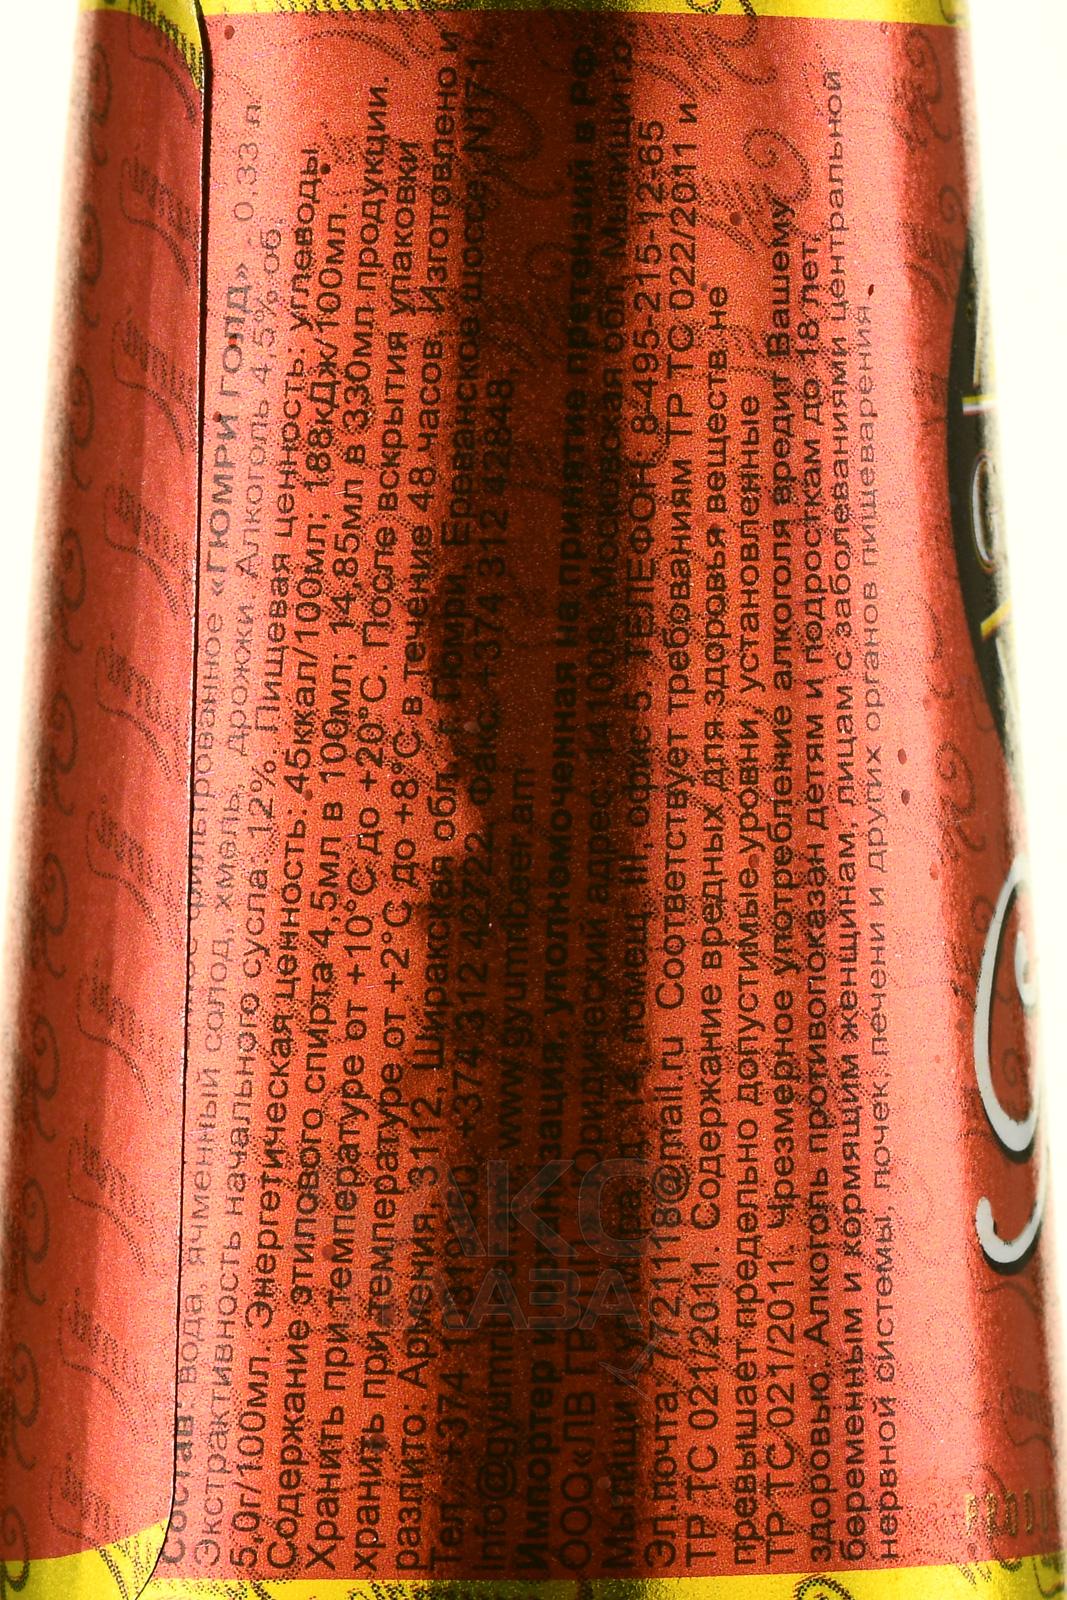 фильтрованное «ГЮМРИ ГОЛД» 0,33 л.
Состав: вода, ячменный солод, хмель, дрожжи. Алкоголь 4,5% об.
Экстрактивность начального сусла: 12%. Пищевая ценность: углеводы
5,0г/100мл. Энергетическая ценность: 45ккал/100мл; 188кДж/100мл.
Содержание этилового спирта 4,5мл в 100мл; 14,85мл в 330мл продукции.
Хранить при температуре от +10°С до +20°С. После вскрытия упаковки
хранить при температуре от +2°С до +8°С в течение 48 часов. Изготовлено и
разлито: Армения, 3112, Ширакская обл., Гюмри, Ереванское шоссе, N171
Тел +374 312 42722, Факс +374 312 42848,
info@gyumribeer.am www.gyumribeer.am
Импортер и организация, уполномоченная на принятие претензий в РФ:
ООО«ЛВ Юридический адрес: 141008, Московская обл, Мытищи г.о.
Мытищи г, Мира ул, д. 14, помещ. III, офис 5. ТЕЛЕФОН: 8-495-215-12-65
Эл.почта 7721118@mail.ru Соответствует требованиям ТР ТС 022/2011 и
ТР ТС 021/2011. Содержание вредных для здоровья веществ не
превышает предельно допустимые уровни, установленные
ТР ТС 021/2011. Чрезмерное употребление алкоголя вредит Вашему
здоровью. Алкоголь противопоказан детям и подросткам до 18 лет,
беременным и кормящим женщинам, лицам с заболеваниями центральной
нервной системы, почек, печени и других органов пищеварения.